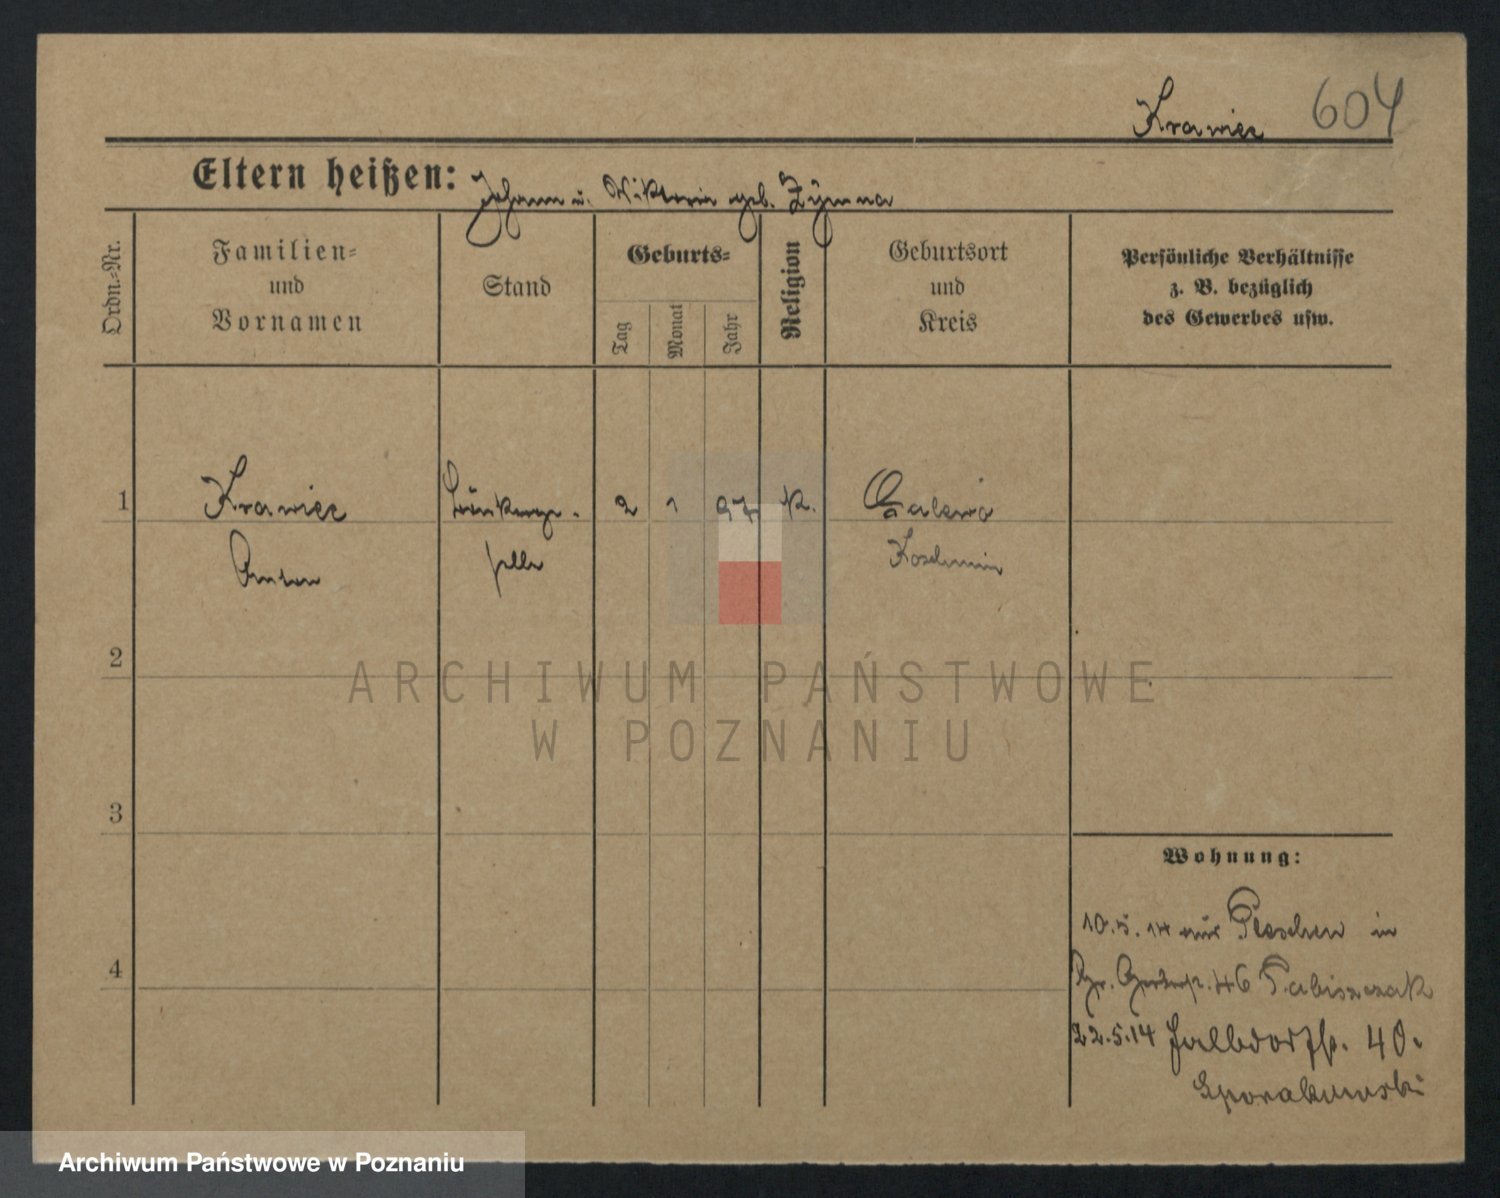 Krawiec 604
Eltern heißen: Johann u. Viktoria geb. Zÿmna
Ordn.-Nr.
Familien-
und
Vornamen
Stand
Geburts-
Tag
Monat
Jahr
Religion
Geburtsort
und
Kreis
Persönliche Verhältnisse
z. B. bezüglich
des Gewerbes usw.
1 Krawiec 2 1 97 k. Galewo
Anton selle Koschmin
2
3
4
Wohnung:
10.5.14 aus Pleschen in
Gr. 46 Tabiszczak
22.5.14 Halbdorfstr. 40.
ARCHIWUM PAŃSTWOWE
W POZNANIU
Archiwum Państwowe w Poznaniu